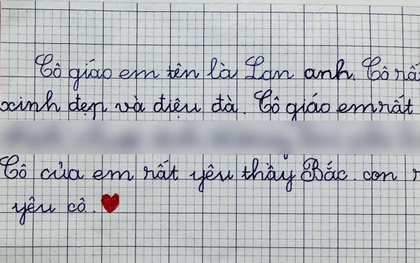 Cô giáo em tên là Lan anh. Cô rấ
xinh đẹp và điệu đà. Cô giáo em rất
Cô của em rất yêu thầy Bắc. con r
yêu cô.